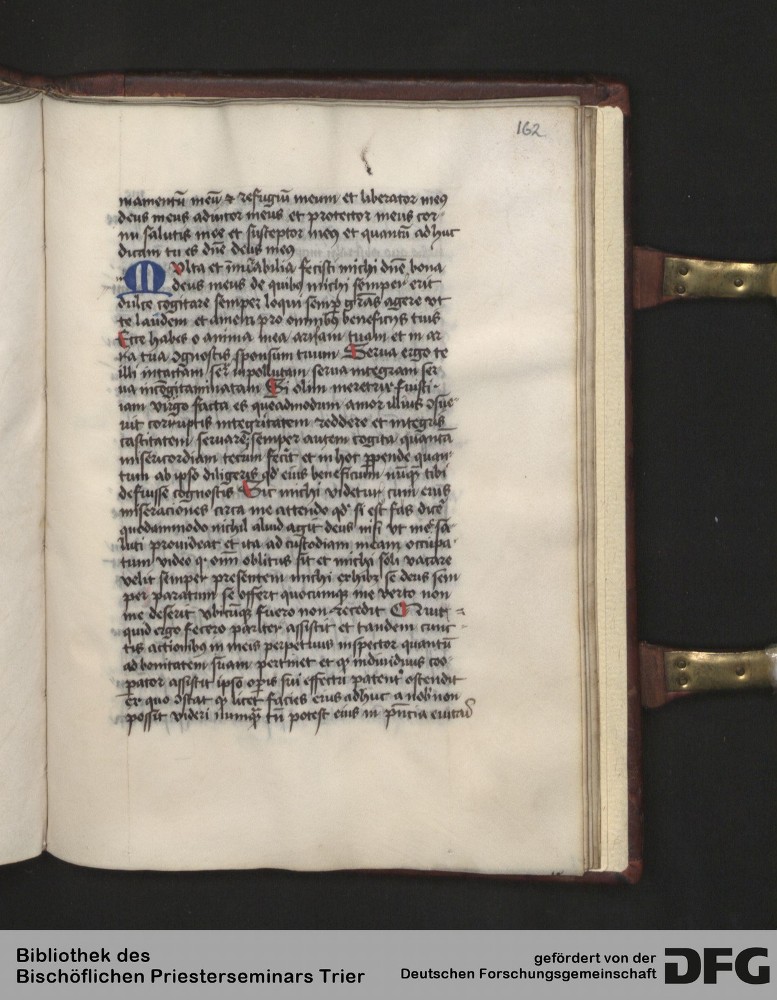 162
mamentū meū & refugiū meum et liberator meꝰ
deus meus adiutor meus et protector meus cor
nu salutis mee et susceptor meꝰ et quantū adhuc
dicam tu es dn̄e deus meꝰ
Multa et mirabilia fecisti michi dn̄e bona
deus meus de quibꝰ michi semper erit
dulce cogitare semper loqui semp gr̄as agere vt
te laudem et amem pro omnibꝰ beneficijs tuis
Ecce habes o anima mea arham tuam et in ar
ha tua ꝯgnoscis sponsum tuum Serua ergo te
illi intactam ser inpollutam serua integram ser
ua incōtaminatam Si olim meretrix fuisti
iam virgo facta es queadmodum amor illius ꝯsue
uit corruptis integritatem reddere et integris
castitatem seruare semper autem cogita quantā
misericordiam tecum fecit et in hoc ꝑpende quan
tum ab ipso diligeris qd' eius beneficium nūqꝫ tibi
defuisse cognoscis Sic michi videtur cum eius
miserationes circa me attendo qd' si est fas dice
quodammodo nichil aliud agit deus nisi vt mee sa
luti prouideat et ita ad custodiam meam occupa
tum video qꝫ om̄i oblitus sit et michi soli vacare
velit semper presentem michi exhibꝫ se deus sem
per paratum se offert quocumqꝫ me verto non
me deserit vbicūqꝫ fuero non recedit
quid ergo fecero pariter assistit et tandem cunc
tis actionibꝰ in meis perpetuus inspector quantū
ad bonitatem suam pertinet et qꝫ indiuiduus coo
pator assistit ipso opis sui effectu patent' ostendit
Ex quo ꝯstat qꝫ licet facies eius adhuc a nob' non
possit videri numqꝫ tn̄ potest eius in pn̄tia euitari
Bibliothek des
Bischöflichen Priesterseminars Trier
gefördert von der
Deutschen Forschungsgemeinschaft
DFG